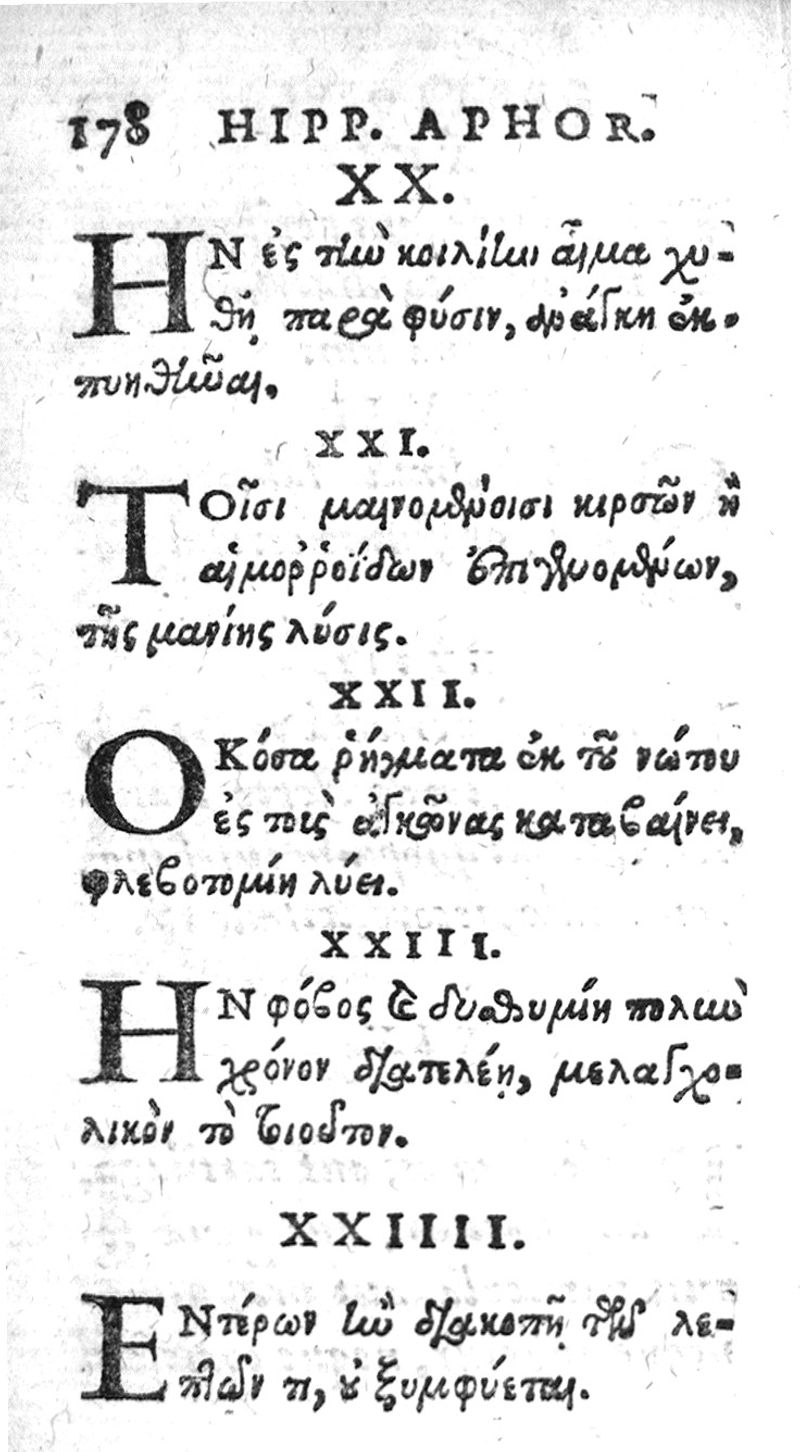 178 HIPP. APHOR.
XX.
ΗΝ ἐς τὴν κοιλίην αἷμα χυ-
θῇ παρὰ φύσιν, ἀνάγκη ἐκ-
πυηθῆναι.
XXI.
ΤΟῖσι μαινομένοισι κιρσῶν ἢ
αἱμοῤῥοΐδων ἐπιγενομένων,
τῆς μανίης λύσις.
XXII.
ΟΚόσα ῥήγματα ἐκ τοῦ νώτου
ἐς τοὺς ἀγκῶνας καταβαίνει,
φλεβοτομίη λύει.
XXIII.
ΗΝ φόβος καὶ δυσθυμίη πολὺν
χρόνον διατελέῃ, μελαγχο-
λικὸν τὸ τοιοῦτον.
XXIIII.
ΕΝτέρων ἢν διακοπῇ τῶν λε-
πτῶν τι, οὐ ξυμφύεται.